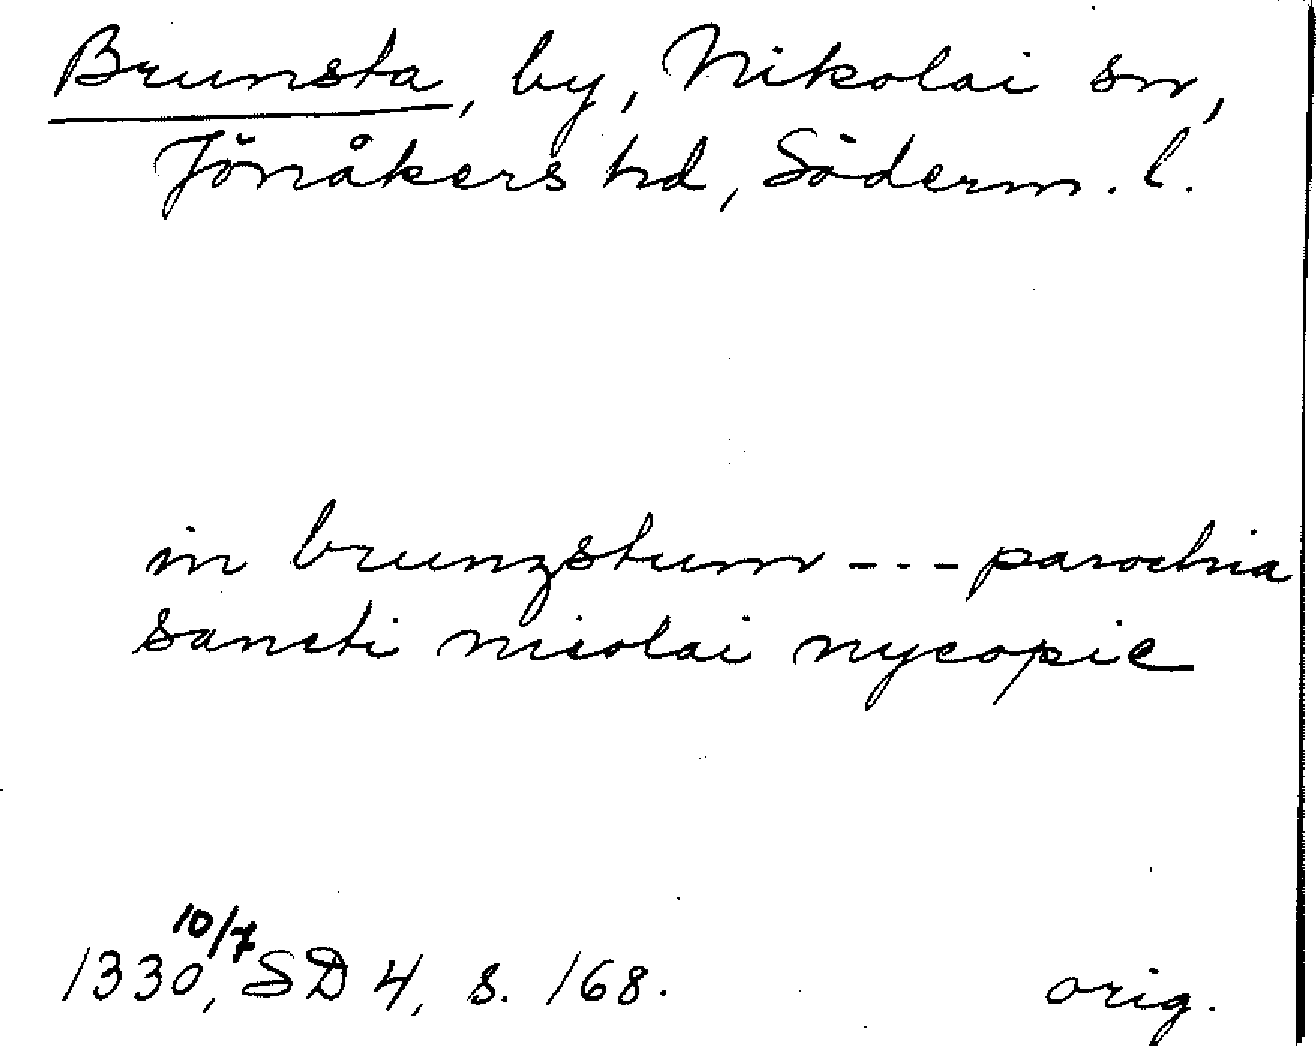 Brunsta, by, Nikolai sn,
Jönåkers hd, Söderm. l.
in brunzstum --- parochia
sancti nicolai nycopie
10/7
1330, SD 4, s. 168. orig.